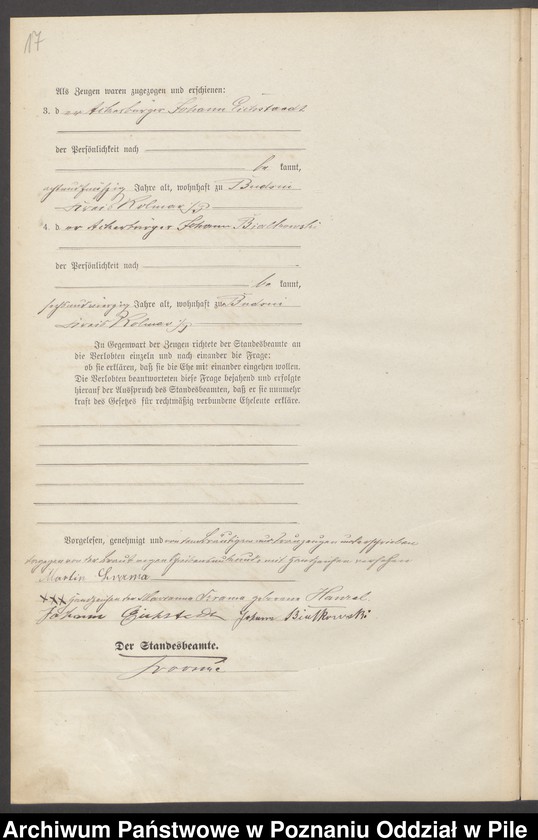 17
Als Zeugen waren zugezogen und erschienen:
3. der Ackerbürger Johann
der Persönlichkeit nach
be kannt,
achtundfünfzig Jahre alt, wohnhaft zu Budsin
Kreis Kolmar i/P
4. der Ackerbürger Johann Bialkowski
der Persönlichkeit nach
be kannt,
Jahre alt, wohnhaft zu Budsin
Kreis Kolmar i/P
In Gegenwart der Zeugen richtete der Standesbeamte an
die Verlobten einzeln und nach einander die Frage:
ob sie erklären, daß sie die Ehe mit einander eingehen wollen.
Die Verlobten beantworteten diese Frage bejahend und erfolgte
hierauf der Ausspruch des Standesbeamten, daß er sie nunmehr
kraft des Gesetzes für rechtmäßig verbundene Eheleute erkläre.
Vorgelesen, genehmigt und von dem Bräutigam und Trauzeugen unterschrieben
dagegen von der Braut wegen Schreibensunkunde mit Handzeichen versehen
Martin
XXX Handzeichen der Marianna geborene
Johann Johann Białkowski
Der Standesbeamte.
Archiwum Państwowe w Poznaniu Oddział w Pile